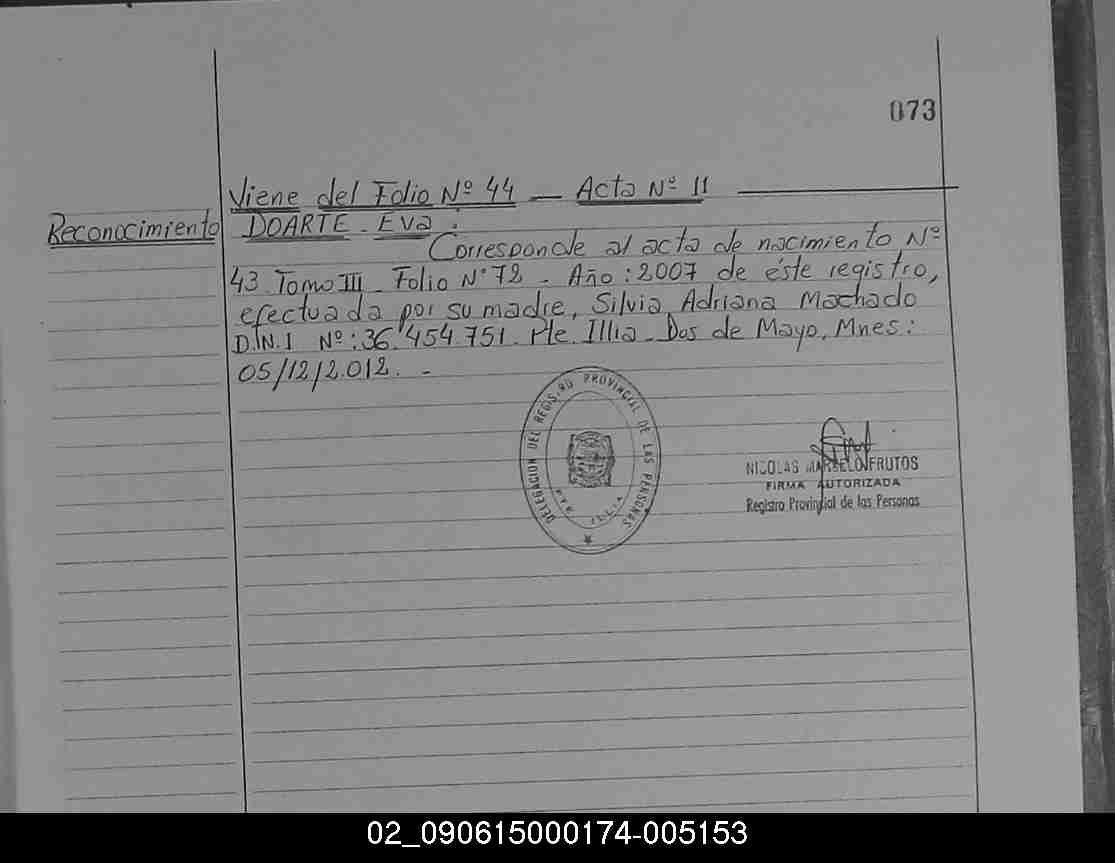 073
Viene del Folio Nº 44 — Acta Nº 11
Reconocimiento DOARTE - Eva :
Corresponde al acta de nacimiento Nº
43 Tomo III - Folio Nº 72 - Año : 2007 de éste registro,
efectuada por su madre, Silvia Adriana Machado
D.N.I Nº : 36.454.751. Pte. Illia - Dos de Mayo, Mnes :
05/12/2.012. -
DELEGACION DEL REGIS.RO PROVINCIAL DE LAS PERSONAS
PTE ILLIA
NICOLAS MARCELO FRUTOS
FIRMA AUTORIZADA
Registro Provincial de las Personas
02_090615000174-005153